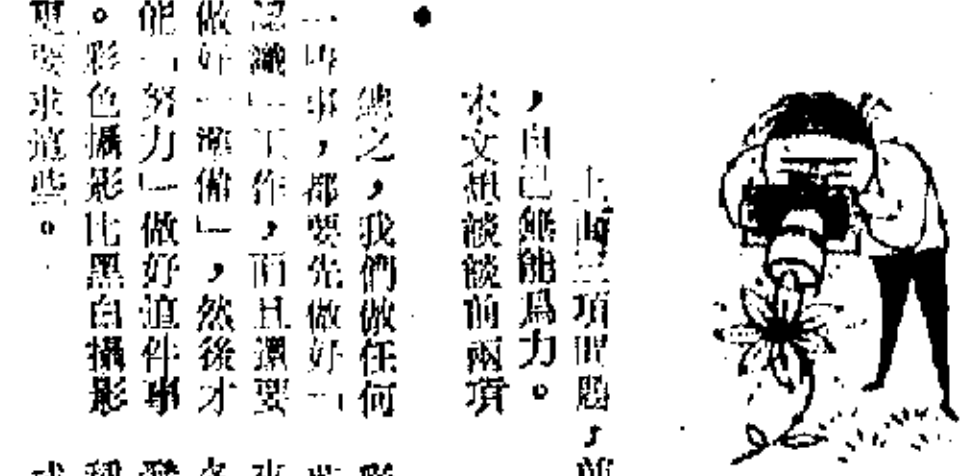 上面三項問題，
，自己無能爲力。
本文想談談前兩項
總之，我們做任何
一件事，都要先做好「
認識」工作，而且還要
做好「準備」，然後才
能「努力」做好這件事
。彩色攝影比黑白攝影
更要求這些。